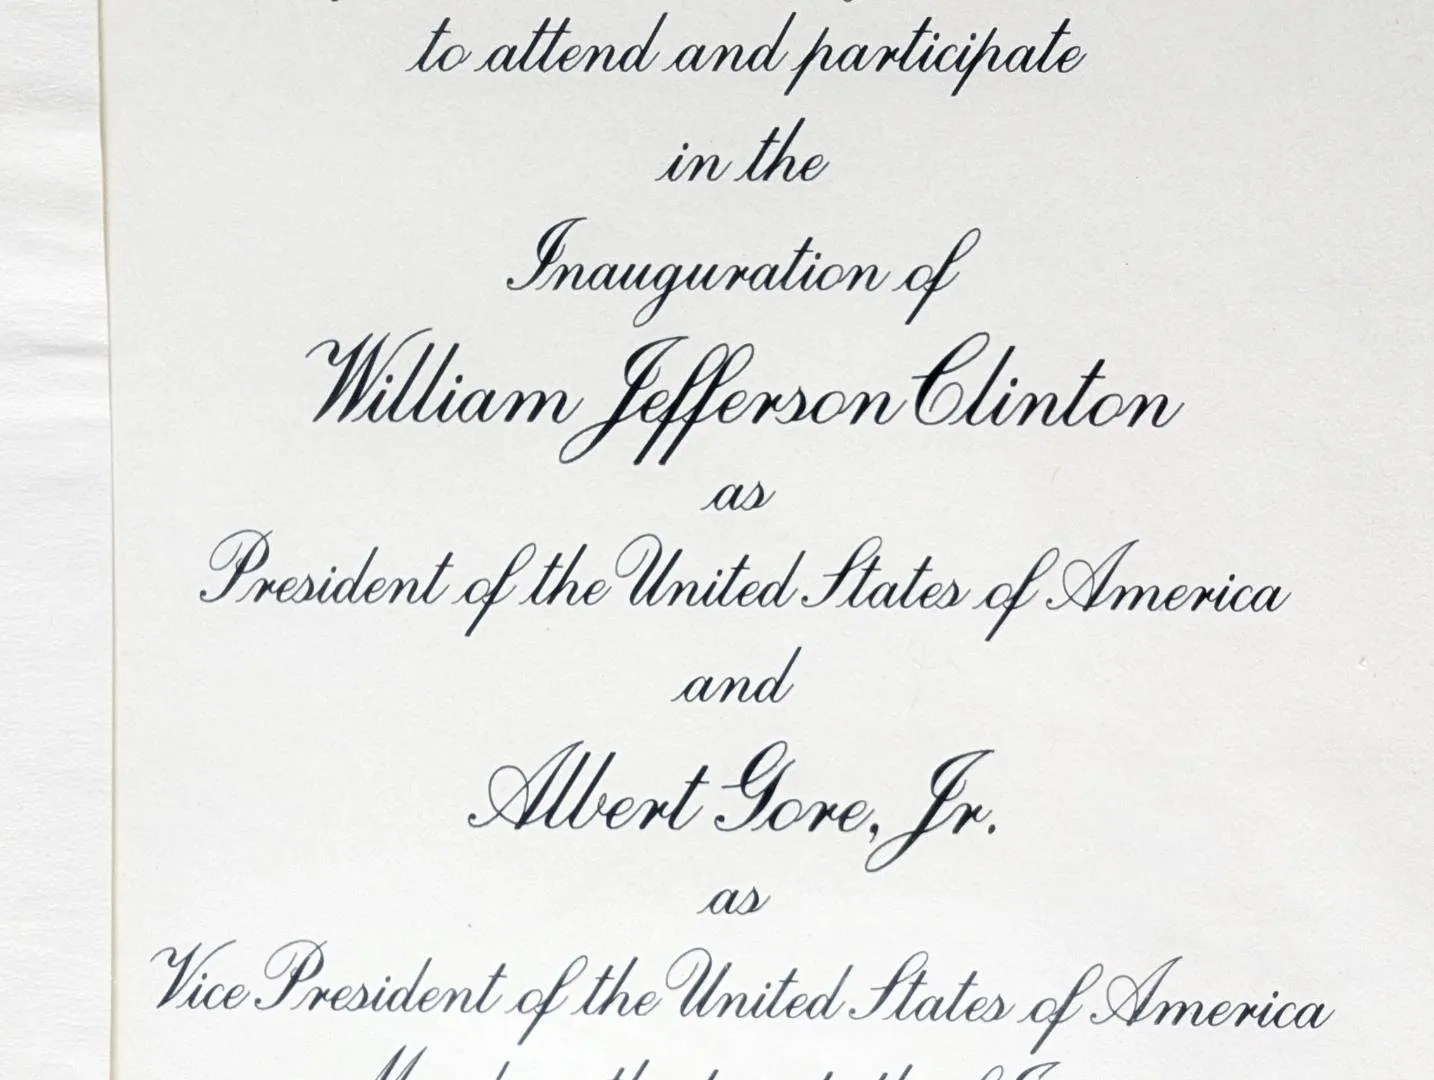 to attend and participate
in the
Inauguration of
William Jefferson Clinton
as
President of the United States of America
and
Albert Gore, Jr.
as
Vice President of the United States of America